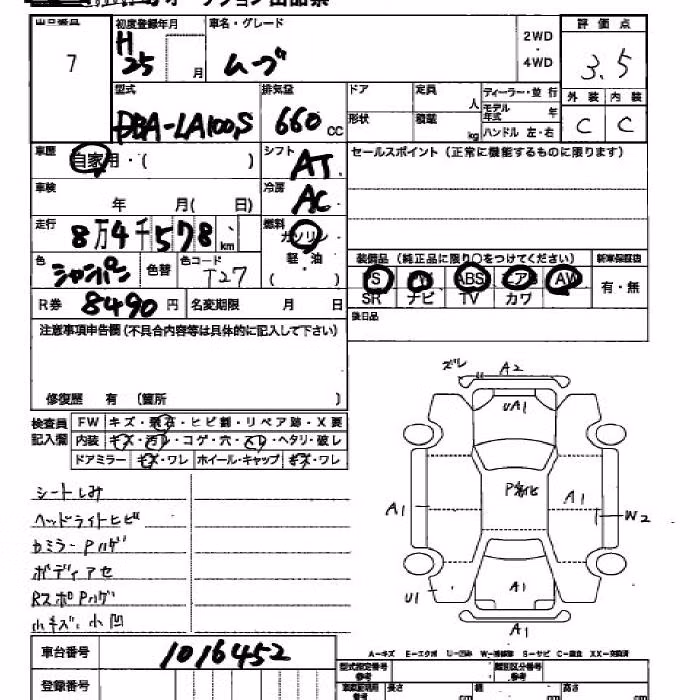 オークション出品票
出品番査 初度登録年月 車名・グレード 評価点
7 H 25 月 ムーブ 2WD・4WD 3.5
外装 内装
C C
型式 排気量 ドア 定員 人 ディーラー・並行
DBA-LA100S 660 CC 形状 積載 kg モデル年式 年
ハンドル 左・右
車歴 自家用・( ) シフト AT セールスポイント (正常に機能するものに限ります)
車検 年 月( 日) 冷房 AC
走行 8万4千578 km 燃料 ガソリン
軽・油
( )
色 シャンパン 色替 色コード T27
装備品 (純正品に限り○をつけてください) 新車保証書
PS PW ABS エアB AW 有・無
SR ナビ TV カワ
R券 8490 円 名変期限 月 日
後日品
注意事項申告欄 (不具合内容等は具体的に記入して下さい)
修復歴 有 (箇所 )
検査員記入欄
FW キズ・飛石・ヒビ割・リペア跡・X要
内装 キズ・汚レ・コゲ・穴・スレ・ヘタリ・破レ
ドアミラー キズ・ワレ ホイール・キャップ キズ・ワレ
シートしみ
ヘッドライトヒビ
カミラーPハゲ
ボディアセ
RスポPハゲ
小キズ 小凹
ズレ A2
UA1
P劣化
A1 A1 W2
U1 A1
A1
A-キズ E-エクボ U-凹み W-補修跡 S-サビ C-腐食 XX-交換済
車台番号 1016452
登録番号
型式指定番号 類別区分番号
長さ cm 幅 cm 高さ cm